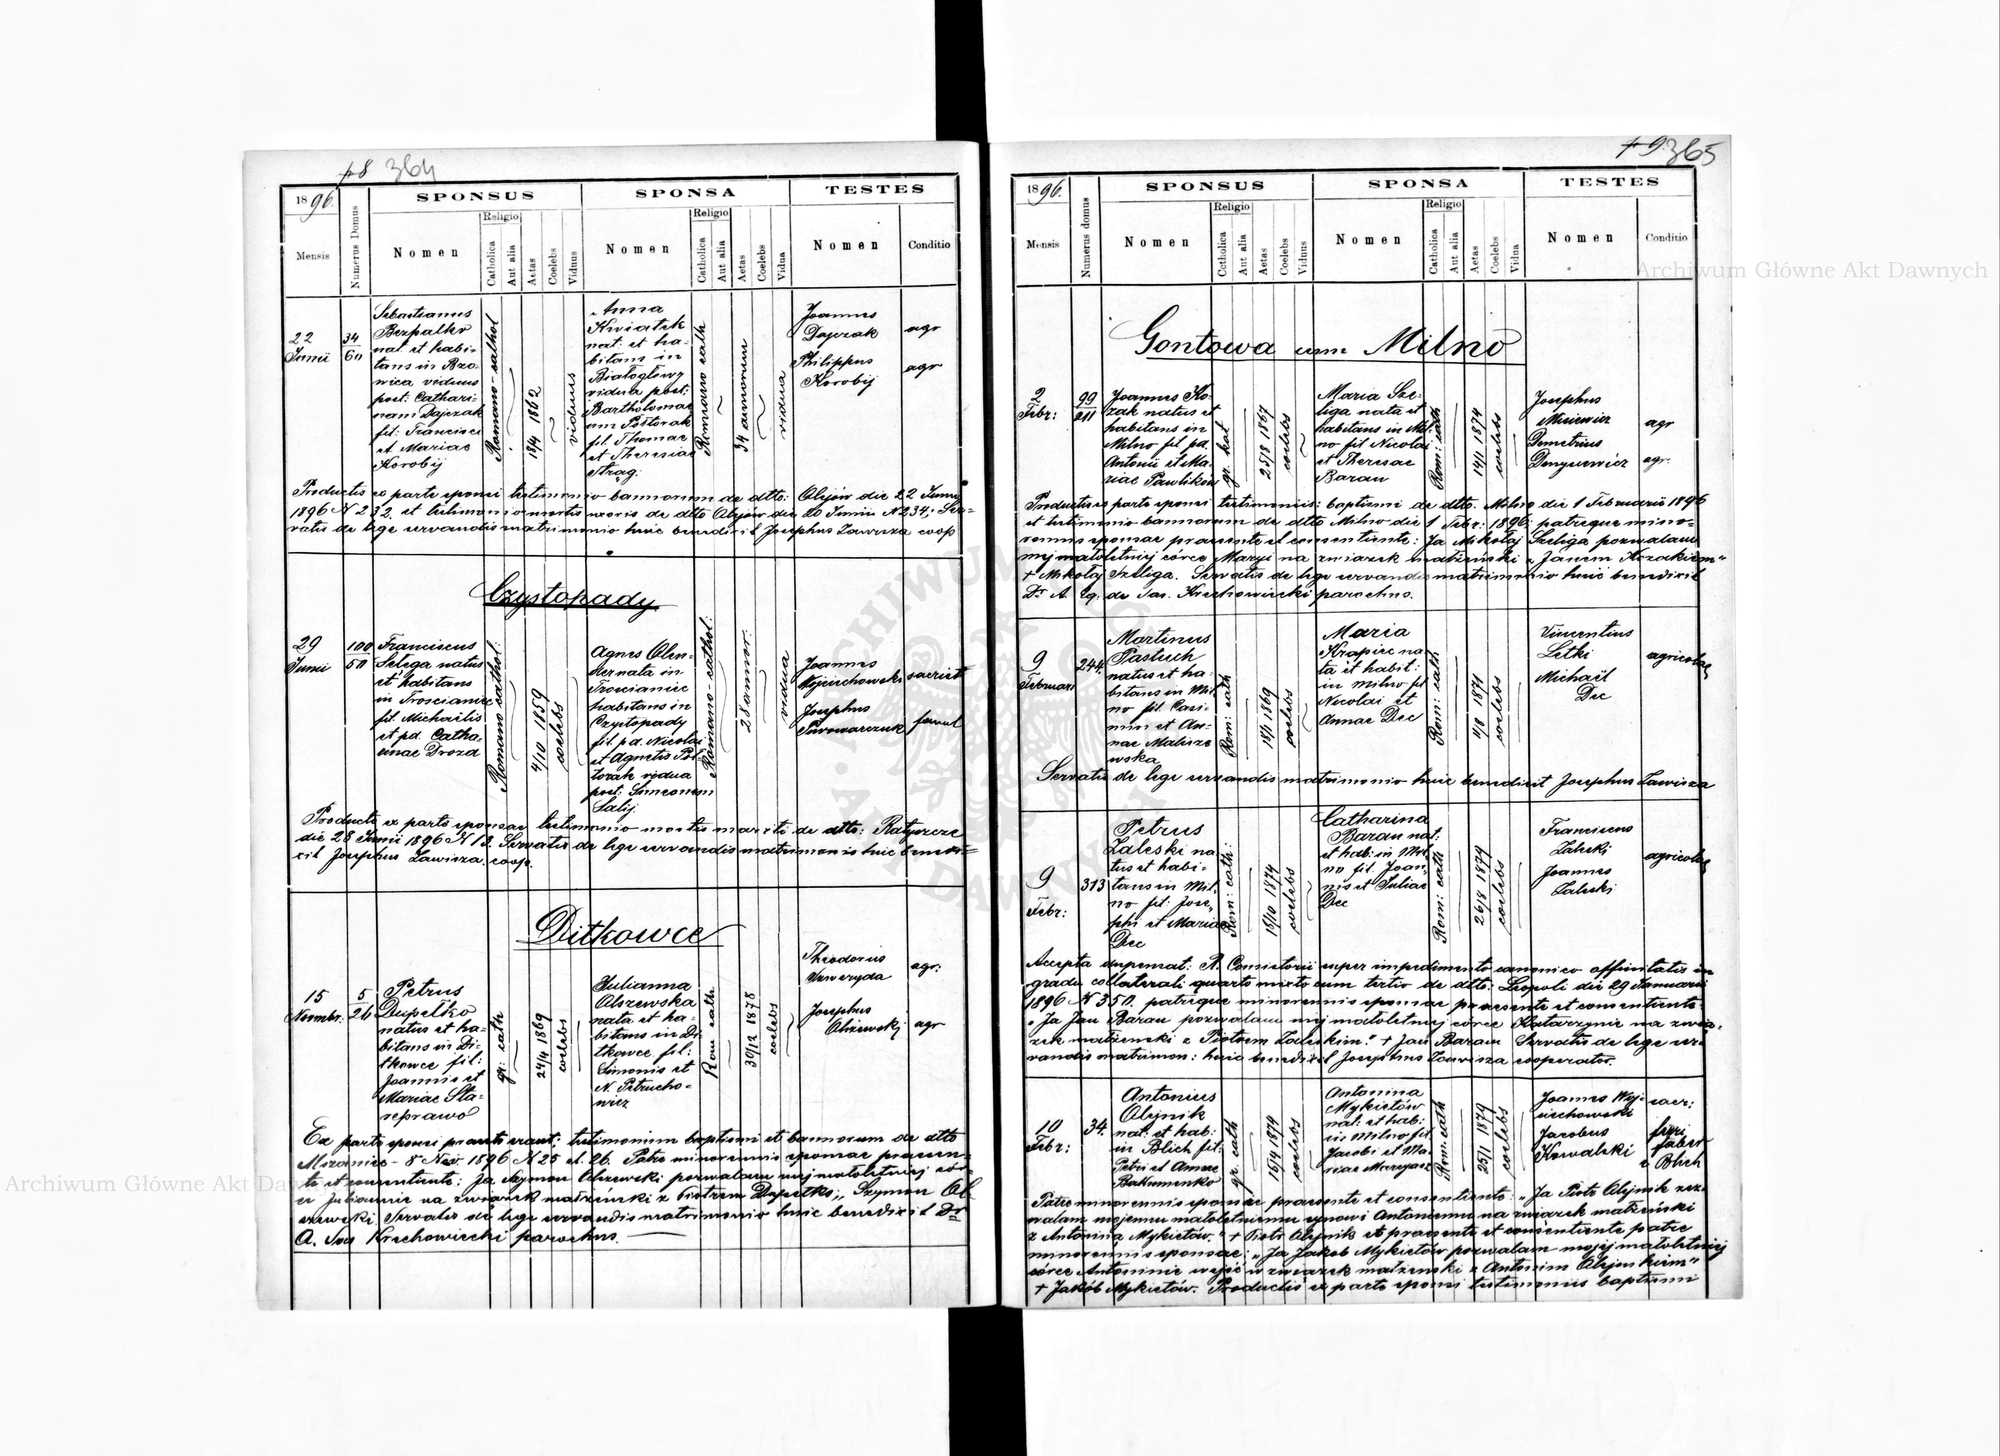 p 8 364
1896.
Mensis
Numerus Domus
SPONSUS
Nomen
Religio
Catholica
Aut alia
Aetas
Coelebs
Viduus
SPONSA
Nomen
Religio
Catholica
Aut alia
Aetas
Coelebs
Vidua
TESTES
Nomen
Conditio
22
Junii
34
60
Sebastianus
Bezpalko
nat. et habi-
tans in Bzo-
wica viduus
post: Cathari-
nam Dajczak
fil: Francisci
et Mariae
Korobij
Romano-cathol
18/4 1862
viduus
Anna
Kwiatek
nat: et ha-
bitans in
Białogłowy
vidua post:
Bartholomae
um Półtorak
fil. Thomae
et Theresiae
Strąg.
Romano cath
34 annorum
vidua
Joannes
Dajczak
Philippus
Korobij
agr
agr
Productis ex parte sponsi testimonio bannorum de dtto: Olejów die 22 Junii
1896 N 232. et testimonio mortis uxoris de dtto Olejów die 20 Junii N 234; Ser-
vatis de lege servandis matrimonio huic benedixit Josephus Zawisza coop
Czystopady
29
Junii
100
50
Franciscus
Seliga natus
et habitans
in Troscianiec
fil. Michaelis
et pd. Catha-
rinae Drozd
Romano cathol:
4/10 1859
coelebs
Agnes Olen-
der nata in
Troscianiec
habitans in
Czystopady
fil. pd. Nicolai
et Agnetis Pół
torak vidua
post: Simeonem
Salij
Romano-cathol:
28 annor:
vidua
Joannes
Wojciechowski
Josephus
Piwowarczuk
sacrist
famul
Producto ex parte sponsae testimonio mortis mariti de dtto: Ratyszcze
die 28 Junii 1896 N 12. Servatis de lege servandis matrimonio huic bened=
xit Josephus Zawisza coop.
Ditkowce
15
Novmbr.
5
26
Petrus
Dupełko
natus et ha-
bitans in Di-
tkowce fil:
Joannis et
Mariae Sta-
reprawo
gr: cath
24/4 1869
coelebs
Julianna
Olszewska
nata et ha-
bitans in Di-
tkowce fil:
Simonis et
N. Petrucho-
wicz
Rom cath
30/12 1878
coelebs
Theodorus
Szweryda
Josephus
Olszewskj
agr:
agr
Ex parte sponsi testimonium baptismi et bannorum de dtto
8 Nov. 1896 N 25 et 26. Patre minorennis sponsae praesen-
te et consentiente: Ja Szymon Olszewski pozwalam mej małoletniej cór-
ce Juliannie na związek małżeński z Piotrem Dupełko; Szymon Ol-
szewski. Servatis de lege servandis matrimonio huic benedixit Dr
A. Krechowiecki parochus.
p 9. 365
1896.
Mensis
Numerus domus
SPONSUS
Nomen
Religio
Cotholica
Aut alia
Aetas
Coelebs
Viduus
SPONSA
Nomen
Religio
Catholica
Aut alia
Aetas
Coelebs
Vidua
TESTES
Nomen
Conditio
Gontowa cum Milno
2
Febr:
99
211
Joannes Ko-
zak natus et
habitans in
Milno fil pd.
Antonii et Ma-
riae Pawlików
gr. kat
25/8 1867
coelebs
Maria Sze-
liga nata et
habitans in Mil
no fil Nicolai
et Theresae
Baran
Rom: cath
14/1 1874
coelebs
Josephus
Misiewicz
Demetrius
Denysewicz
agr
agr.
Productis ex parte sponsi testimoniis: baptismi de dtto. Milno die 1 Februarii 1896
et testimonio bannorum de dtto Milno die 1 Febr: 1896; patreque mino-
rennis sponsae praesente et consentiente: Ja Mikołaj Szeliga pozwalam
mej małoletniej córce Maryi na związek małżeński z Janem Kozakiem"
+ Mikołaj Szeliga. Servatis de lege servandis matrimonio huic benedixit
Dr A. Eq. de Jas. Krechowiecki parochus.
9
Februarii
244
Martinus
Pastuch
natus et ha-
bitans in Mil
no fil. Casi-
miri et An-
nae Malisze
wska
Rom: cath
18/4 1869
coelebs
Maria
Krąpiec na
ta et habit:
in Milno fil
Nicolai et
Annae Dec
Rom: cath
4/8 1871
coelebs
Vincentius
Letki
Michaël
Dec
agricolae
Servatis de lege servandis matrimonio huic benedixit Josephus Zawisza
9
Febr:
313
Petrus
Zaleski na
tus et habi-
tans in Mil-
no fil: Jose-
phi et Mariae
Dec
Rom: cath:
15/10 1874
coelebs
Catharina
Baran nat:
et hab: in Mil-
no fil. Joan-
nis et Juliae
Dec
Rom: cath
26/8 1879
coelebs
Franciscus
Zaleski
Joannes
Zaleski
agricolae
Accepta dispensat: R. Consistorii super impedimento canonico affinitatis in
gradu collaterali quarto mixto cum tertio de dtto: Leopoli die 29 Januarii
1896 N 350. patreque minorennis sponsae praesente et consentiente
„Ja Jan Baran pozwalam mej małoletniej córce Katarzynie na zwią-
zek małżeński z Piotrem Zaleskim." + Jan Baran Servatis de lege ser-
vandis matrimon: huic benedixit Josephus Zawisza cooperator.
10
Febr:
34.
Antonius
Olejnik
nat: et hab:
in Blich fil:
Petri et Annae
Bakumenko
gr cath
15/4 1874
coelebs
Antonina
Mykietów
nat: et hab:
in Milno fil.
Jacobi et Ma-
riae Maryasz
Rom: cath
25/1 1879
coelebs
Joannes Woj-
ciechowski
Jacobus
Kowalski
sacr:
faber
z Blich
Patre minorennis sponsi praesente et consentiente: „Ja Piotr Olejnik zez-
walam mojemu małoletniemu synowi Antoniemu na związek małżeński
z Antoniną Mykietów." + Piotr Olejnik et praesente et consentiente patre
minorennis sponsae: „Ja Jakób Mykietów pozwalam mojej małoletniej
córce Antoninie wejść w związek małżeński z Antonim Olejnikiem"
+ Jakób Mykietów. Productis ex parte sponsi testimoniis baptismi
Archiwum Główne Akt Dawnych
Archiwum Główne Akt Dawnych
ARCHIWUM GŁÓWNE AKT DAWNYCH